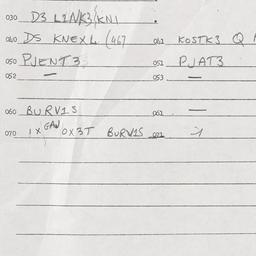 030 D3 L1NK3/KN1
040 DS KNEXL (467 041 KOSTK3 Q
050 PJENT3 051 PJAT3
052 — 053 —
060 BURV1S 061 —
070 1X GAV 0X3T BURV1S 071